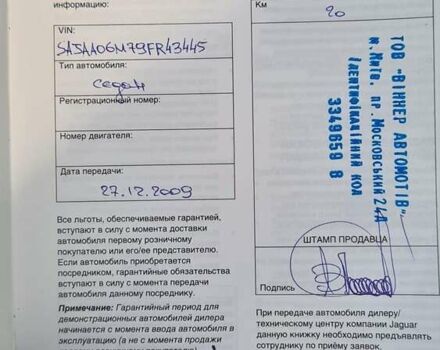 информацию:
VIN:
SAJAA06M79FR43445
Тип автомобиля:
седан
Регистрационный номер:
Номер двигателя:
Дата передачи:
27.12.2009
Все льготы, обеспечиваемые гарантией,
вступают в силу с момента доставки
автомобиля первому розничному
покупателю или его/ее представителю.
Если автомобиль приобретается
посредником, гарантийные обязательства
вступают в силу с момента передачи
автомобиля данному посреднику.
Примечание: Гарантийный период для
демонстрационных автомобилей дилера
начинается с момента ввода автомобиля в
эксплуатацию (а не с момента продажи
Км
20
ТОВ "ВІННЕР АВТОМОТІВ"
м. Київ, пр. Московський 24А
ІДЕНТИФІКАЦІЙНИЙ КОД
3349859 8
ШТАМП ПРОДАВЦА
Подпись
При передаче автомобиля дилеру/
техническому центру компании Jaguar
данную книжку необходимо предъявлять
сотруднику по приёму заявок.